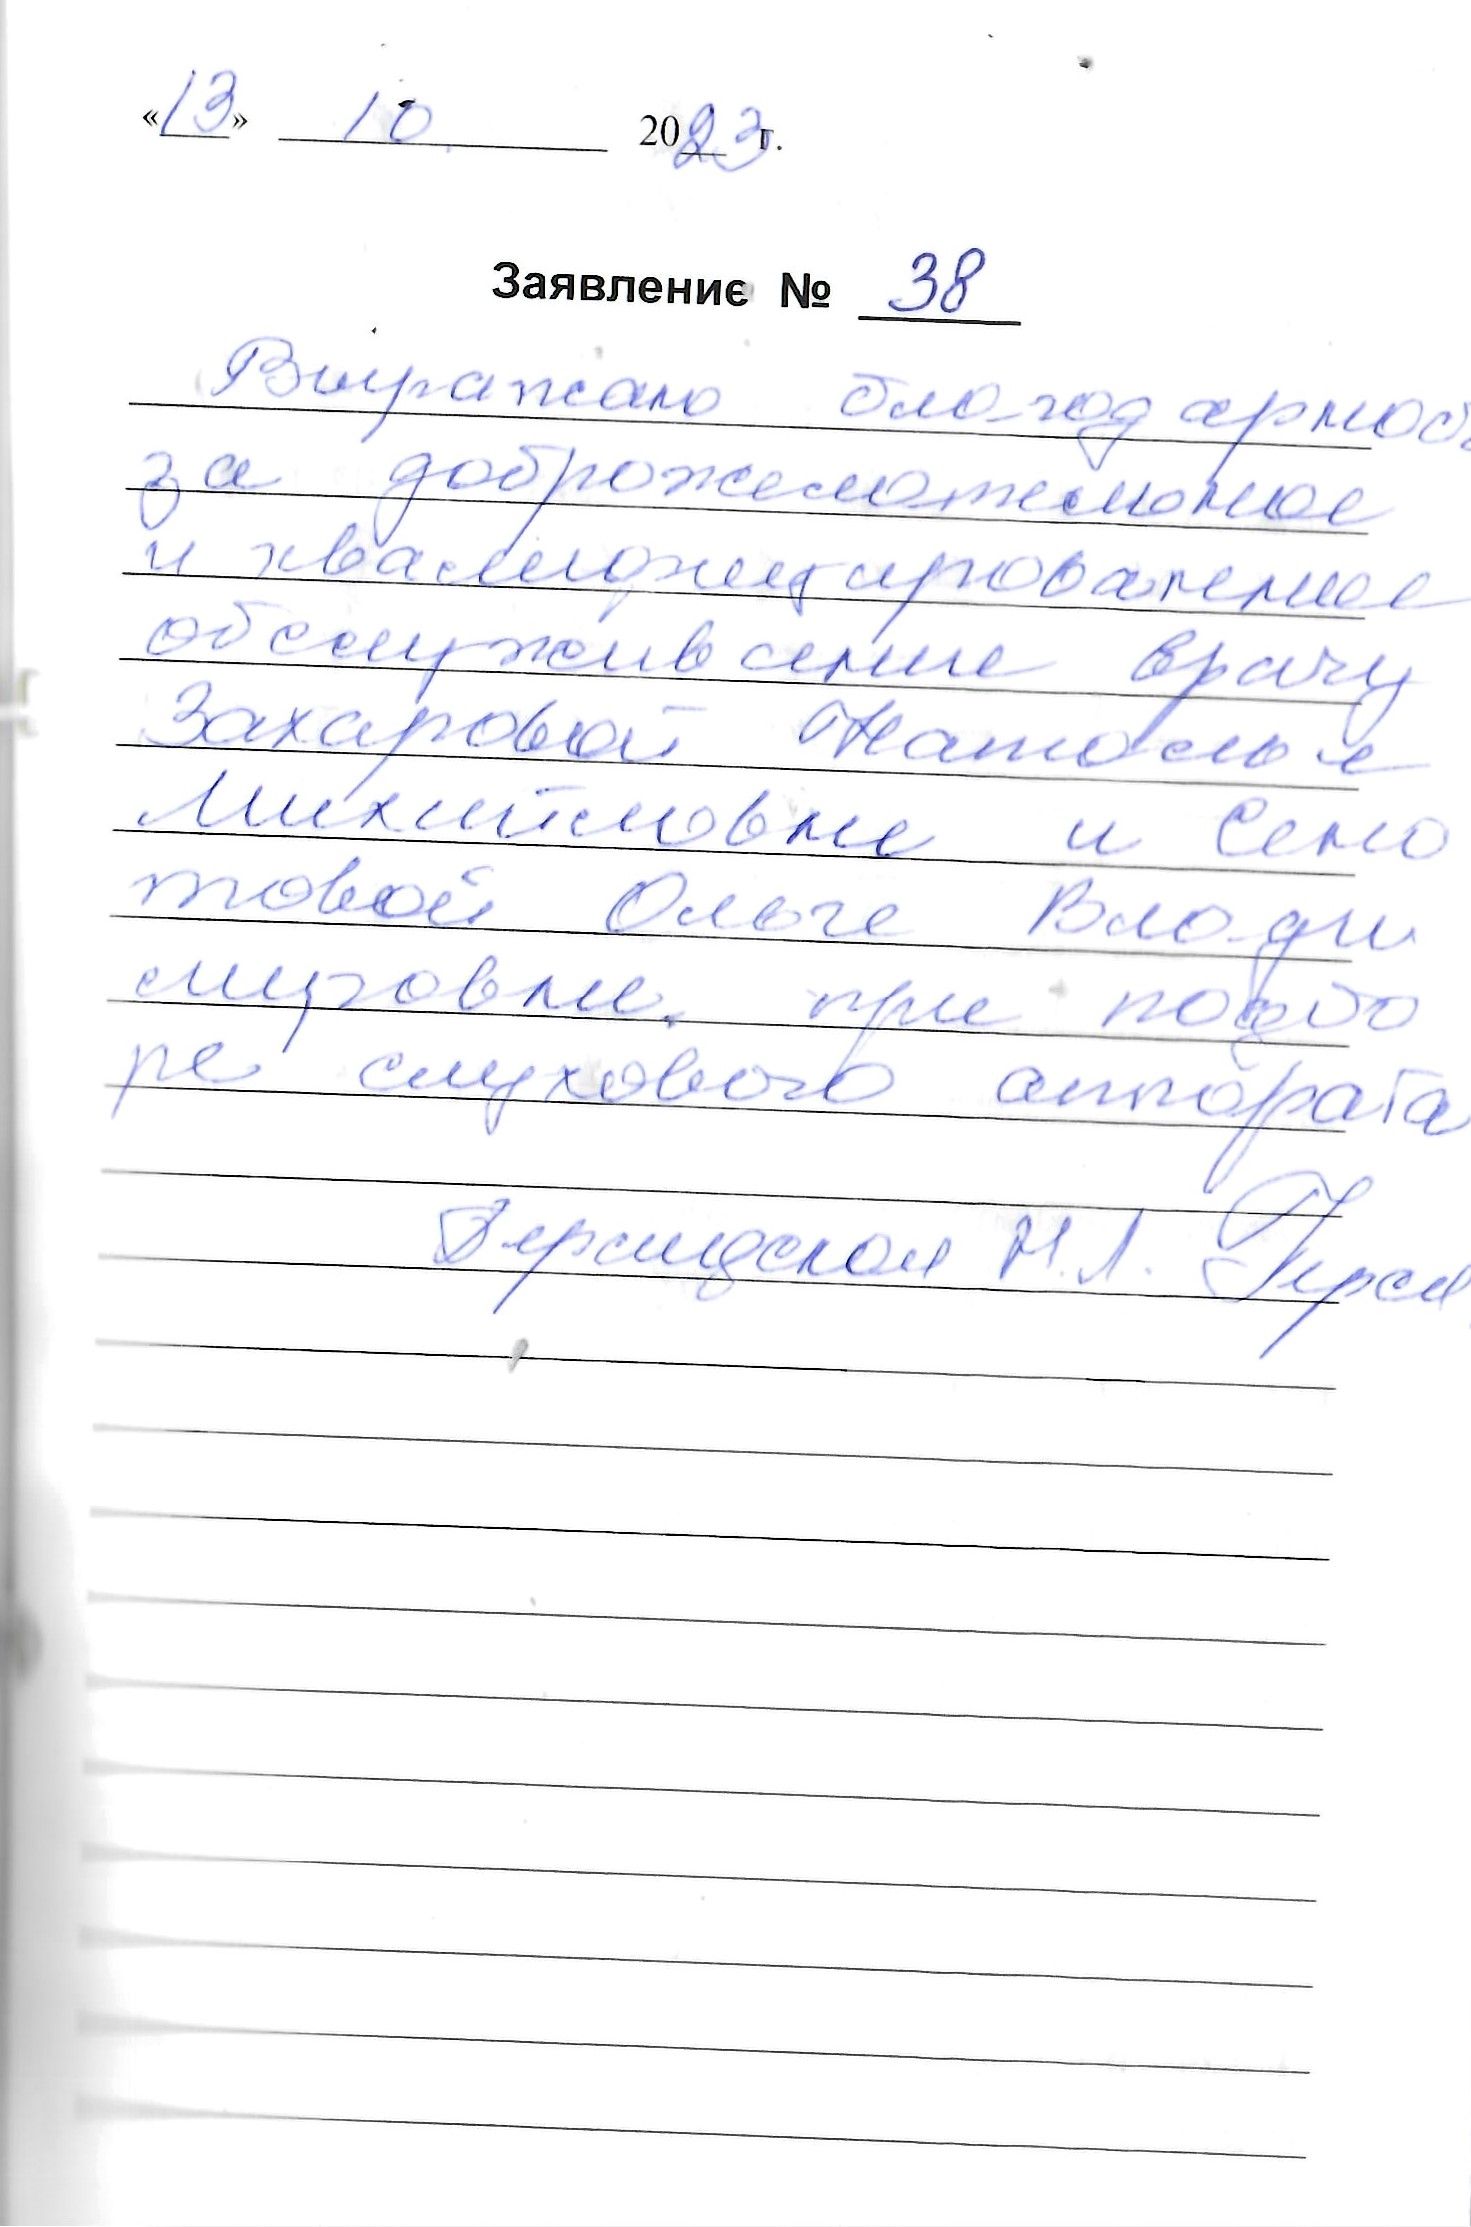 «13» 10. 2023 г.
Заявление № 38
Выражаю благодарность
за доброжелательное
и квалифицированное
обслуживание врачу
Захаровой Наталье
Михайловне и
Ольге Влади
мировне. при подбо
ре слухового аппарата
Н.Л.